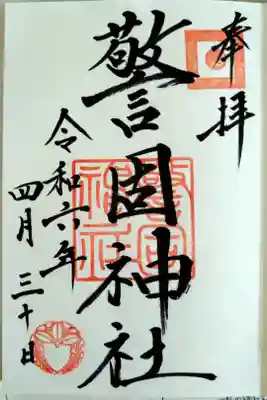 奉拝
警固神社
令和六年
四月三十日